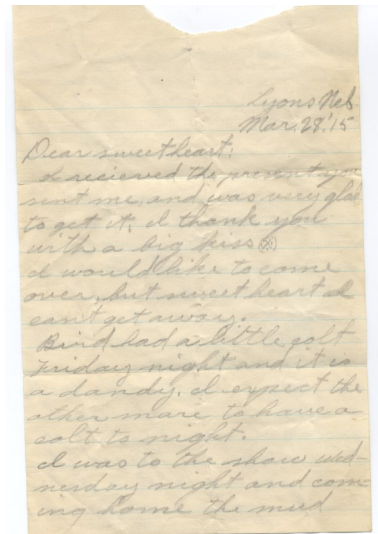 Lyons Neb.
Mar. 28, '15
Dear sweetheart:
I recieved the present you
sent me, and was very glad
to get it, I thank you
with a big kiss
I would like to come
over, but sweet heart I
can't get away.
Bird had a little colt
Friday night and it is
a dandy. I expect the
other mare to have a
colt to night.
I was to the show Wed-
nesday night and com-
ing home the mud